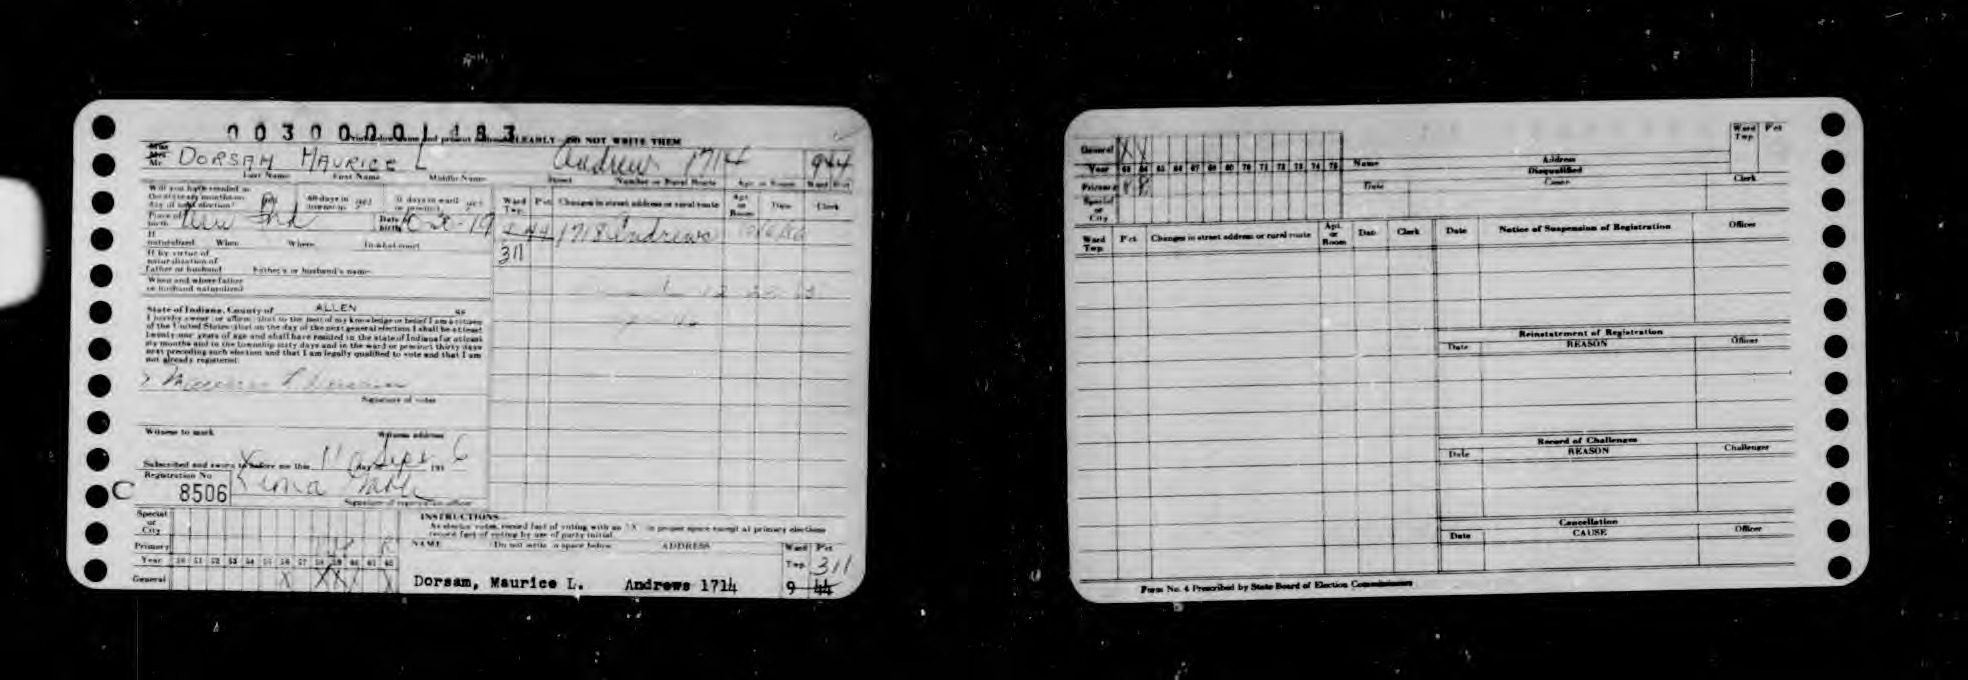 00300001183
CLEARLY DO NOT WRITE THEM
Miss
Mrs
Mr DORSAM MAURICE L Andrews 1714 944
Last Name First Name Middle Name Street Number or Rural Route Apt. or Room Ward Pct
Will you have resided in
the state six months on
day of next election? yes 60 days in township yes 30 days in ward or precinct yes
Ward Twp. Pct. Changes in street address or rural route Apt. or Room Date Clerk
Place of birth Ind Date birth
44 1718 Andrews
311
If naturalized When Where In what court
If by virtue of
naturalization of
father or husband Father's or husband's name
When and where father
or husband naturalized
State of Indiana, County of ALLEN SS
I hereby swear (or affirm) that to the best of my knowledge or belief I am a citizen
of the United States that on the day of the next general election I shall be at least
twenty-one years of age and shall have resided in the state of Indiana for at least
six months and in the township sixty days and in the ward or precinct thirty days
next preceding such election and that I am legally qualified to vote and that I am
not already registered
Maurice L Dorsam
Signature of voter
Witness to mark Witness address
Subscribed and sworn to before me this 11 day Sept 195 6
Registration No
C 8506
Signature of registration officer
Special
or
City
Primary R
Year 50 51 52 53 54 55 56 57 58 59 60 61 62
General X X X X X
INSTRUCTIONS
As elector votes, record fact of voting with an "X" in proper space except at primary elections
record fact of voting by use of party initial
NAME (Do not write in space below) ADDRESS Ward Twp. Pct
311
Dorsam, Maurice L. Andrews 1714 9 44
General X X
Year 63 64 65 66 67 68 69 70 71 72 73 74 75
Primary R R
Special
or
City
Name Address Ward Twp. Pct
Disqualified
Date Cause Clerk
Ward Twp. Pct. Changes in street address or rural route Apt. or Room Date Clerk
Date Notice of Suspension of Registration Officer
Reinstatement of Registration
Date REASON Officer
Record of Challenges
Date REASON Challenger
Cancellation
Date CAUSE Officer
Form No. 4 Prescribed by State Board of Election Commissioners